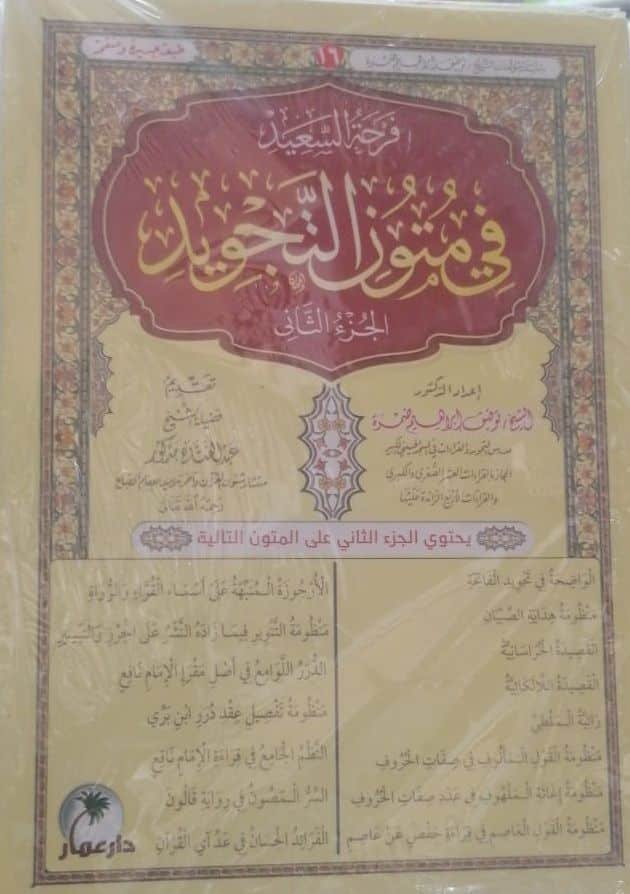 طبعة جديدة ومنقحة
١٦
فرحة السعيد
فِي مُتُونِ التَّجْوِيدِ
الجُزءُ الثَّانِي
إعداد الدكتور
الشيخ/ توفيق إبراهيم ضمرة
المجاز بالقراءات العشر الصغرى والكبرى
والقراءات الأربع الزائدة عليها
تقديم
فضيلة الشيخ
عبد الفتاح مدكور
رحمه الله تعالى
يحتوي الجزء الثاني على المتون التالية
الوَاضِحَةُ فِي تَجْوِيدِ الفَاتِحَةِ
مَنْظُومَةُ هِدَايَةِ الصِّبْيَانِ
القَصِيدَةُ الخُرَاسَانِيَّةُ
القَصِيدَةُ اللَّالَكَائِيَّةُ
رَائِيَّةُ المَلَطِيِّ
مَنْظُومَةُ القَوْلِ المَأْلُوفِ فِي صِفَاتِ الحُرُوفِ
مَنْظُومَةُ إِغَاثَةِ المَلْهُوفِ فِي عَدَدِ صِفَاتِ الحُرُوفِ
مَنْظُومَةُ القَوْلِ العَاصِمِ فِي قِرَاءَةِ حَفْصٍ عَنْ عَاصِمٍ
الْأُرْجُوزَةُ الْمُنَبِّهَةُ عَلَى أَسْمَاءِ الْقُرَّاءِ وَالرُّوَاةِ
مَنْظُومَةُ التَّنْوِيرِ فِيمَا زَادَهُ النَّشْرُ عَلَى الْحِرْزِ وَالتَّيْسِيرِ
الدُّرَرُ اللَّوَامِعُ فِي أَصْلِ مَقْرَإِ الْإِمَامِ نَافِعٍ
مَنْظُومَةُ تَفْصِيلِ عِقْدِ دُرَرِ ابْنِ بَرِّي
النَّظْمُ الْجَامِعُ فِي قِرَاءَةِ الْإِمَامِ نَافِعٍ
السِّرُّ الْمَصُونُ فِي رِوَايَةِ قَالُونَ
الْفَرَائِدُ الْحِسَانُ فِي عَدِّ آيِ الْقُرْآنِ
دار عمار